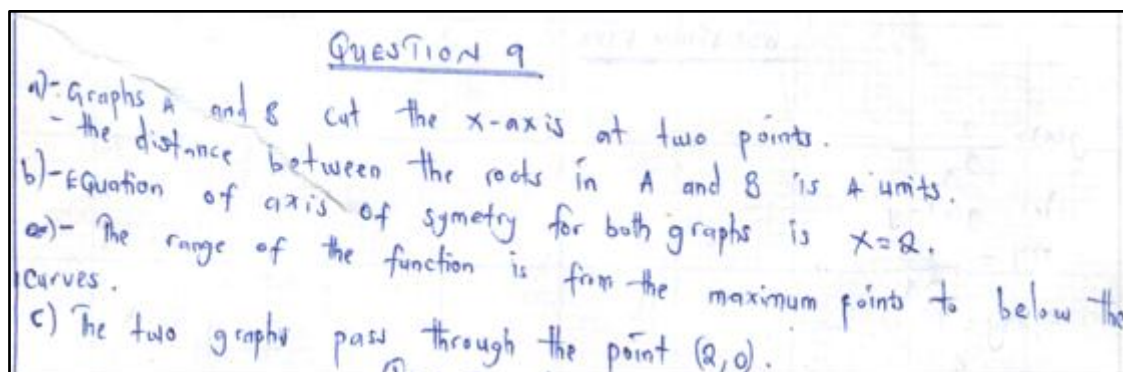 QUESTION 9
a)- Graphs A and B cut the x-axis at two points.
- the distance between the roots in A and B is 4 units.
b)- EQuation of axis of symetry for both graphs is x=2.
- The range of the function is from the maximum points to below the
curves.
c) The two graphs pass through the point (2,0).